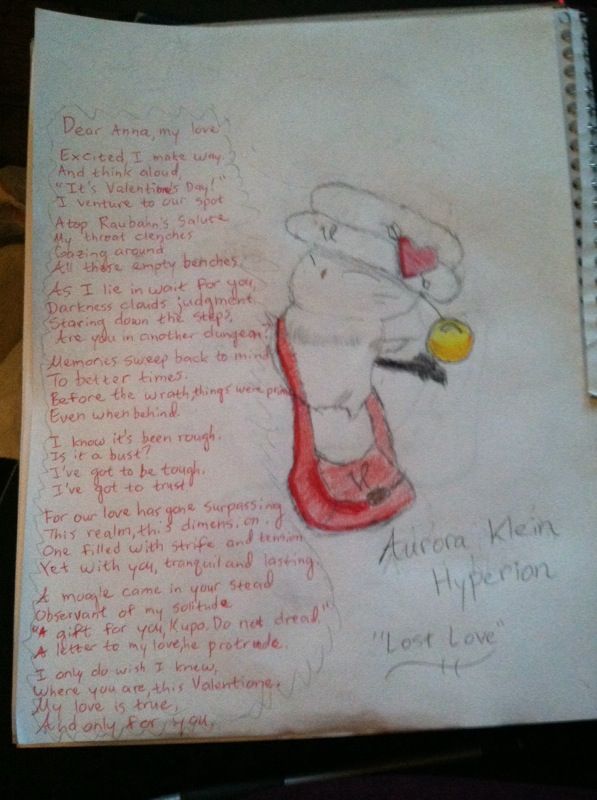 Dear Anna, my love
Excited, I make way.
And think aloud,
"It's Valentione's Day!"
I venture to our spot
Atop Raubahn's Salute
My throat clenches
Gazing around
All these empty benches.
As I lie in wait for you,
Darkness clouds judgment.
Staring down the steps,
Are you in another dungeon?
Memories sweep back to mind
To better times.
Before the wrath, things were prime
Even when behind.
I know it's been rough.
Is it a bust?
I've got to be tough.
I've got to trust
For our love has gone surpassing
This realm, this dimension.
One filled with strife and tension
Yet with you, tranquil and lasting.
A moogle came in your stead
Observant of my solitude
"A gift for you, Kupo. Do not dread."
A letter to my love, he protrude.
I only do wish I knew,
Where you are, this Valentione.
My love is true,
And only for you,
Aurora Klein
Hyperion
"Lost Love"